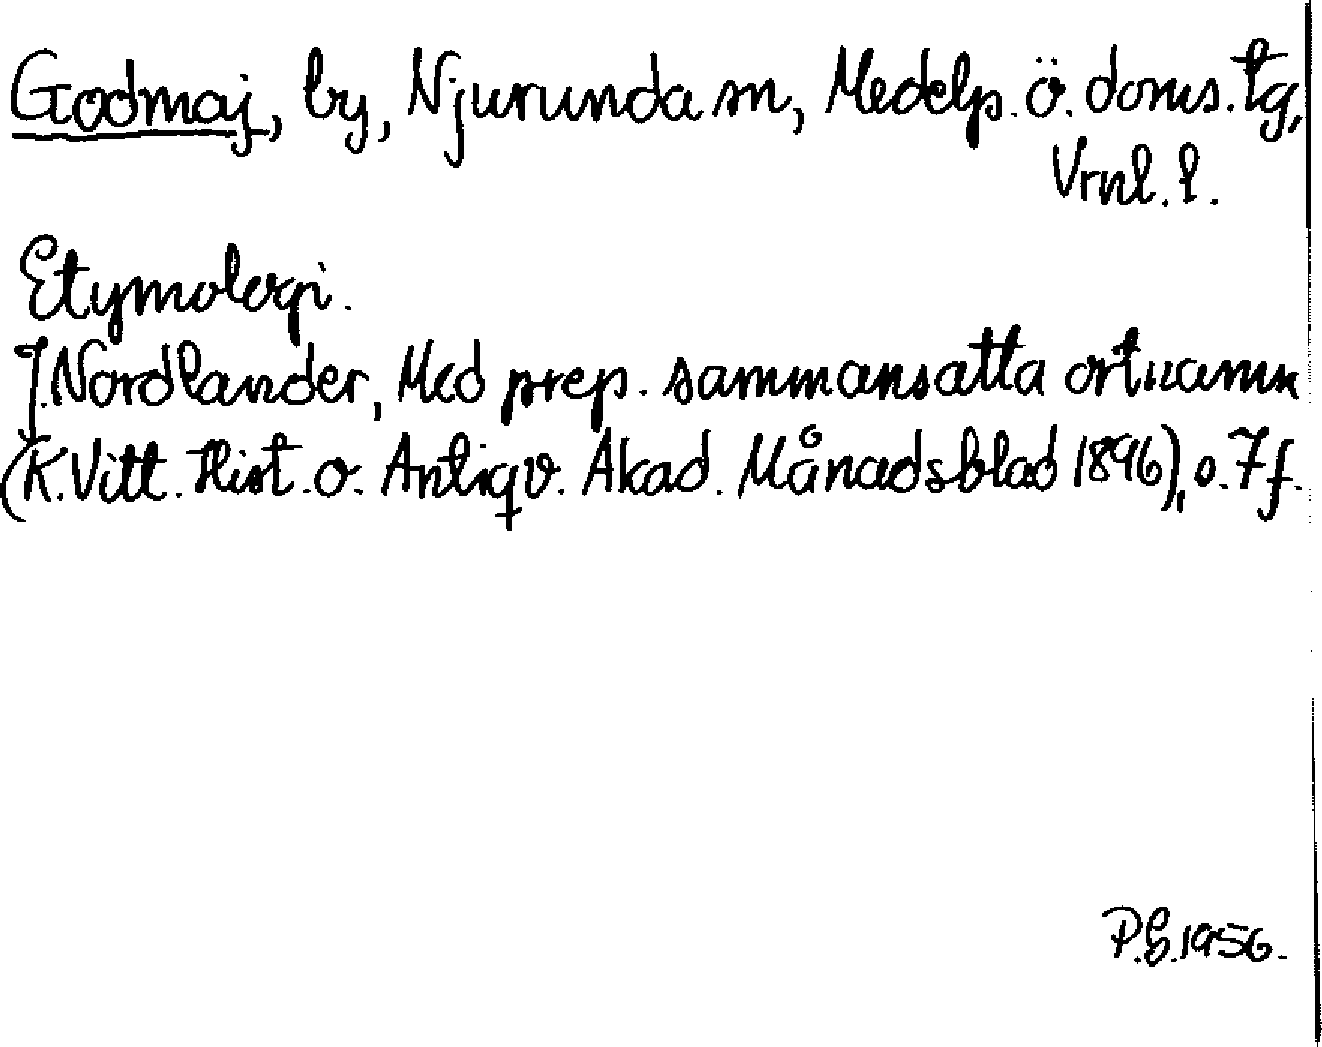 Godmaj, by, Njurunda sn, Medelp. ö. doms. tg,
Vrnl. l.
Etymologi.
J. Nordlander, Med prep. sammansatta ortnamn
(K. Vitt. Hist. o. Antiqv. Akad. Månadsblad 1896), s. 7 f.
P.G. 1956.